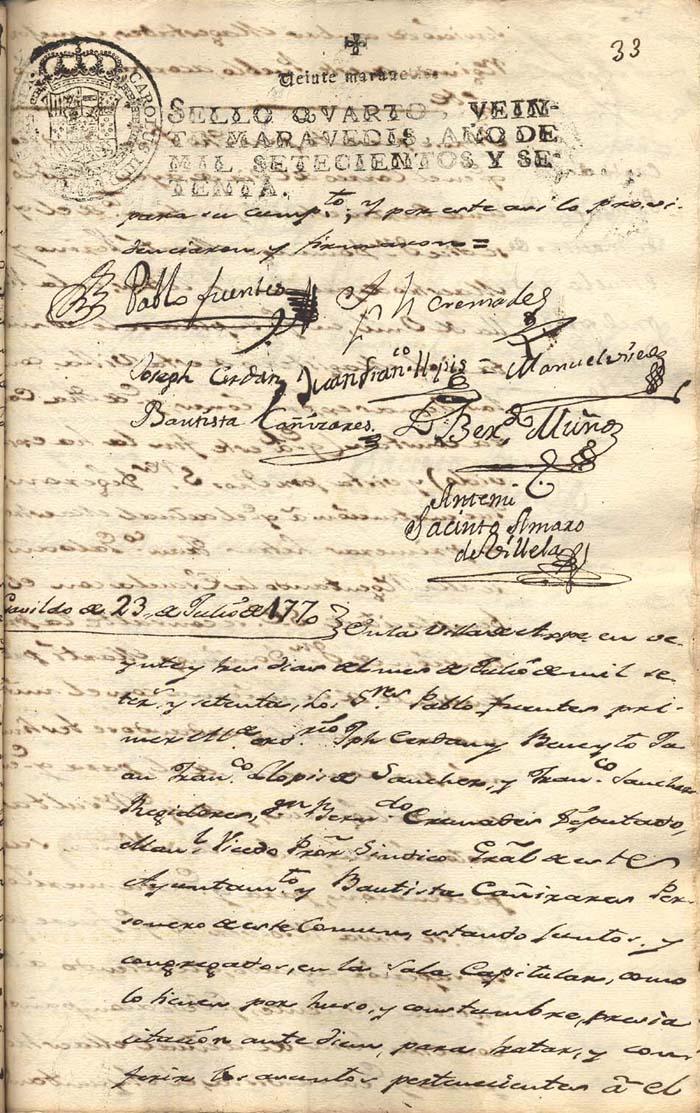 33
CAROLUS III
Veinte maravedis
SELLO QVARTO, VEIN-
TE MARAVEDIS, AÑO DE
MIL SETECIENTOS Y SE-
TENTA.
para su cump.to; Y por este asi lo provi
denciaron, y firmaron =
Pablo fuentes Jph Cremades
Joseph Cerdan Juan Fran.co Llopis = Manuel Vicedo
Bautista Cañizares. D. Ber.do Muñoz
Antemi
Jacinto Amaro
de Villela
Cavildo de 23, de Julio de 1770
En la Villa de Aspe en ve
ynte y tres dias del mes de Julio de mil se
tec.s y setenta, los S.res Pablo fuentes pri
mer Alc.e ord.rio Jph Cerdan y Beneyto Ju
an Fran.co Llopis de Sanchez, y Fran.co Sanchez
Regidores, Ber.do Cremades Diputado,
Man.l Vicedo Pror Sindico Gral de este
Ayuntam.to y Bautista Cañizares Per
sonero de este Comun, estando juntos, y
congregados, en la Sala Capitular, como
lo tienen por huso, y constumbre, presia
citacion ante diem, para tratar, y con
ferir los asuntos pertenecientes a el